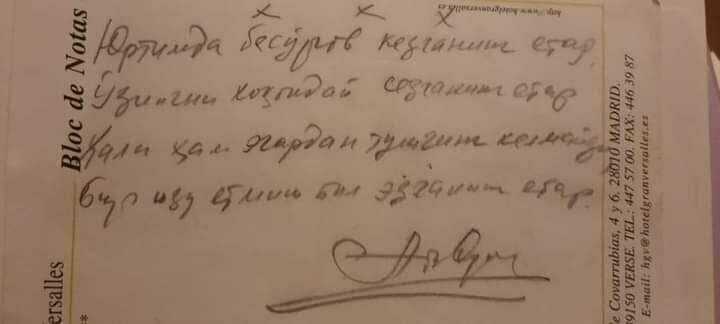 http://www.hotelgranversalles.es
Bloc de Notas
Юртимда бесўроқ кезганинг етар,
Ўзингни хоқондай сезганинг етар
Ҳали ҳам эгардан тушгинг келмайди
Бир юз етмиш йил эзганинг етар.
ersalles
e Covarrubias, 4 y 6. 28010 MADRID.
39150 VERSE. TEL.: 447 57 00. FAX: 446 39 87
E-mail: hgv@hotelgranversalles.es